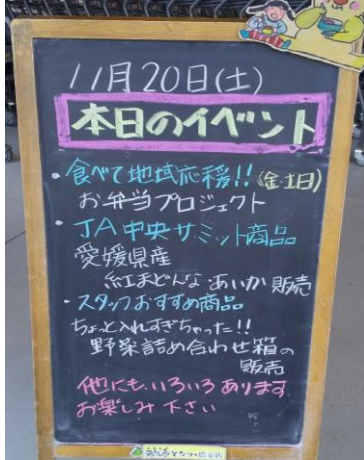 11月20日(土)
本日のイベント
・食べて地域応援!!(金・土・日)
お弁当プロジェクト
・JA中央サミット商品
愛媛県産
紅まどんな あいか 販売
・スタッフおすすめ商品
ちょっと入れすぎちゃった!!
野菜詰め合わせ箱の
販売
他にも、いろいろあります
お楽しみ下さい